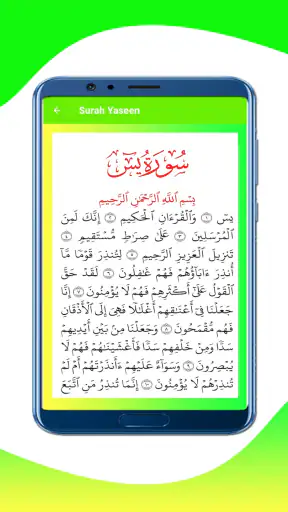 Surah Yaseen
سُورَةُ يسٓ
بِسْمِ ٱللَّهِ ٱلرَّحْمَٰنِ ٱلرَّحِيمِ
يسٓ ۝١ وَٱلْقُرْءَانِ ٱلْحَكِيمِ ۝٢ إِنَّكَ لَمِنَ
ٱلْمُرْسَلِينَ ۝٣ عَلَىٰ صِرَٰطٍ مُّسْتَقِيمٍ ۝٤
تَنزِيلَ ٱلْعَزِيزِ ٱلرَّحِيمِ ۝٥ لِتُنذِرَ قَوْمًا مَّآ
أُنذِرَ ءَابَآؤُهُمْ فَهُمْ غَٰفِلُونَ ۝٦ لَقَدْ حَقَّ
ٱلْقَوْلُ عَلَىٰٓ أَكْثَرِهِمْ فَهُمْ لَا يُؤْمِنُونَ ۝٧ إِنَّا
جَعَلْنَا فِىٓ أَعْنَٰقِهِمْ أَغْلَٰلًا فَهِىَ إِلَى ٱلْأَذْقَانِ
فَهُم مُّقْمَحُونَ ۝٨ وَجَعَلْنَا مِنۢ بَيْنِ أَيْدِيهِمْ
سَدًّا وَمِنْ خَلْفِهِمْ سَدًّا فَأَغْشَيْنَٰهُمْ فَهُمْ لَا
يُبْصِرُونَ ۝٩ وَسَوَآءٌ عَلَيْهِمْ ءَأَنذَرْتَهُمْ أَمْ لَمْ
تُنذِرْهُمْ لَا يُؤْمِنُونَ ۝١٠ إِنَّمَا تُنذِرُ مَنِ ٱتَّبَعَ